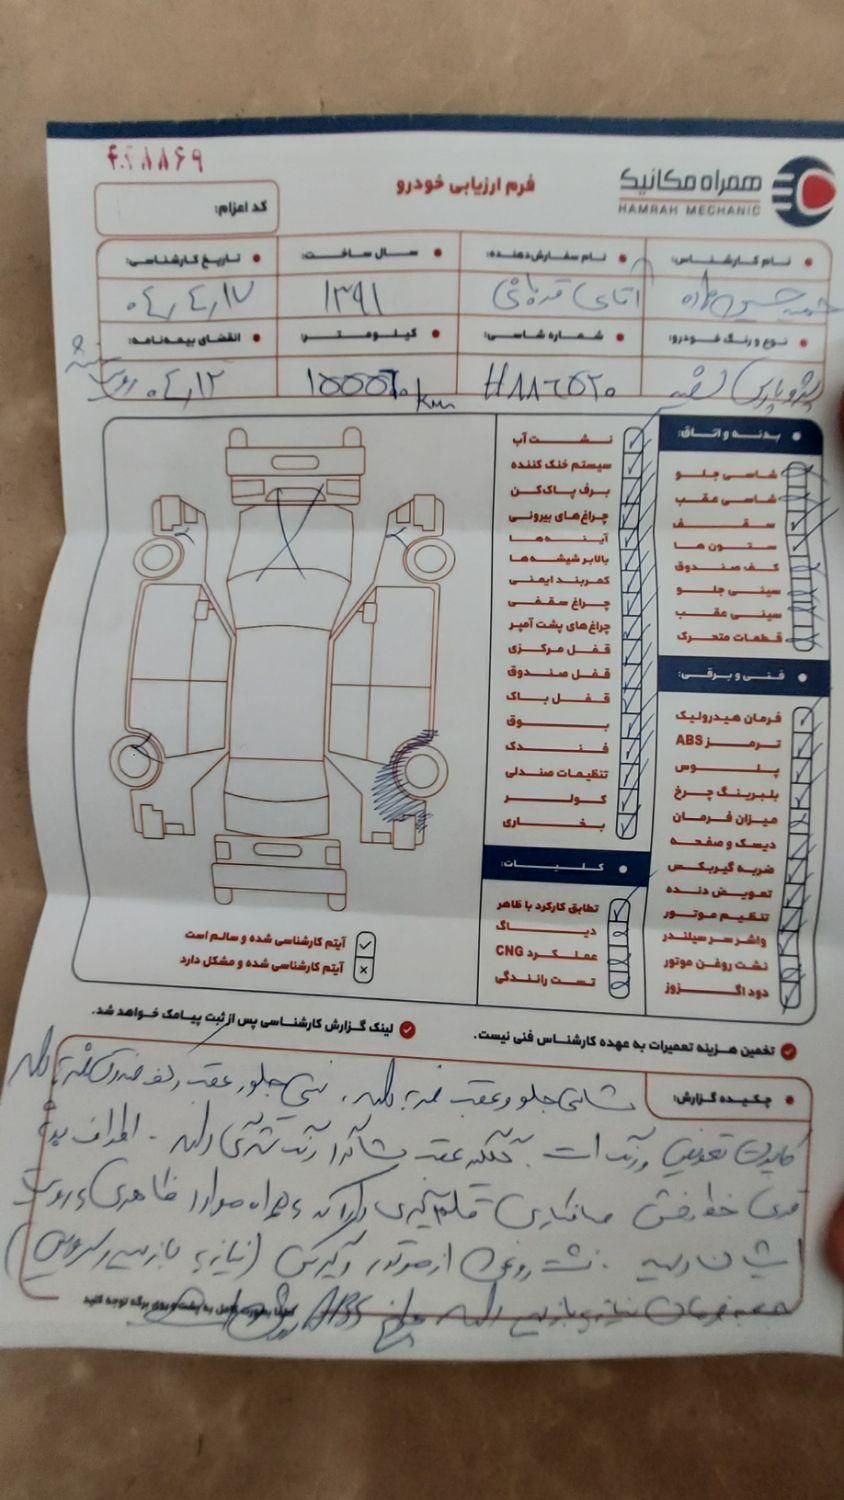 ۴۰۸۸۶۹
همراه مکانیک
HAMRAH MECHANIC
فرم ارزیابی خودرو
کد اعزام:
نام کارشناس:
نام سفارش‌دهنده:
سال ساخت:
تاریخ کارشناسی:
آقای
۱۳۹۱
۰۴٫۴٫۱۷
نوع و رنگ خودرو:
شماره شاسی:
کیلومتر:
انقضای بیمه‌نامه:
پژو پارس
km
بدنه و اتاق:
شاسی جلو
شاسی عقب
سقف
ستون ها
کف صندوق
سینی جلو
سینی عقب
قطعات متحرک
فنی و برقی:
فرمان هیدرولیک
ترمز ABS
پلوس
بلبرینگ چرخ
میزان فرمان
دیسک و صفحه
ضربه گیربکس
تعویض دنده
تنظیم موتور
واشر سر سیلندر
نشت روغن موتور
دود اگزوز
نشت آب
سیستم خنک کننده
برف پاک‌کن
چراغ‌های بیرونی
آینه‌ها
بالابر شیشه‌ها
کمربند ایمنی
چراغ سقفی
چراغ‌های پشت آمپر
قفل مرکزی
قفل صندوق
قفل باک
بوق
فندک
تنظیمات صندلی
کولر
بخاری
کلیات:
تطابق کارکرد با ظاهر
دیاگ
عملکرد CNG
تست رانندگی
آیتم کارشناسی شده و سالم است
آیتم کارشناسی شده و مشکل دارد
تخمین هزینه تعمیرات به عهده کارشناس فنی نیست.
لینک گزارش کارشناسی پس از ثبت پیامک خواهد شد.
چکیده گزارش:
شاسی جلو و عقب ضربه دارد، سینی جلو و عقب و کف صندوق ضربه دارد
کاپوت تعویض و رنگ است. گلگیر عقب شاگرد رنگ شدگی دارد. اطراف بدنه
نشت روغن از موتور و گیربکس (نیاز به بازرسی و سرویس)
جعبه فرمان نیاز به بازرسی دارد چراغ ABS روشن
لطفا بصورت کامل به پشت و روی برگه توجه کنید